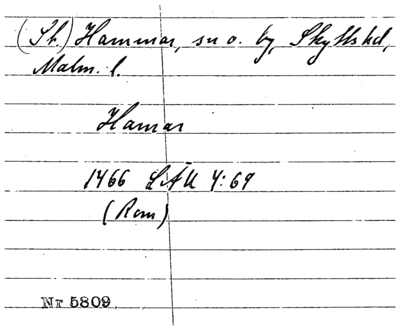 (St.) Hammar, sn o. by, Skytts hd,
Malm. l.
Hamar
1466 LÄU 4:69
(Rom)
Nr 5809.